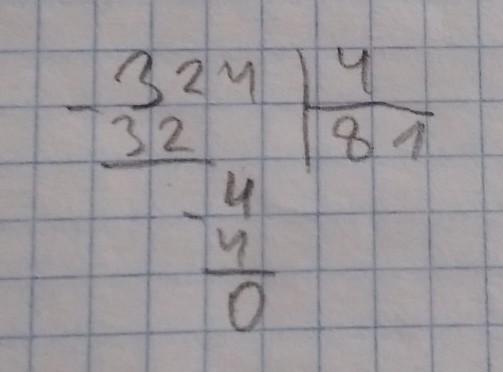 - 324 | 4
32 | 81
- 4
4
0